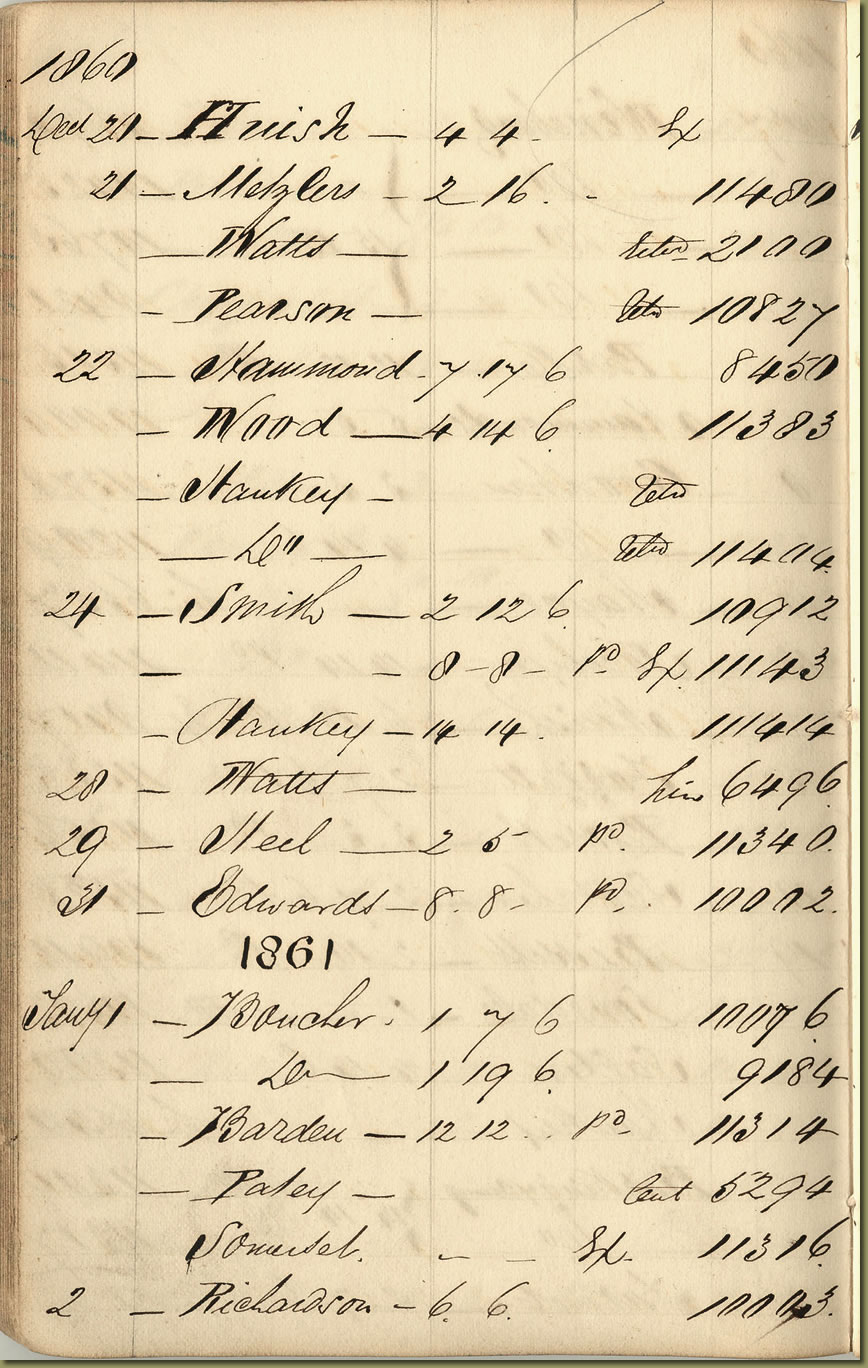 1860
Decr 20 — Huish — 4 4 - Ex
21 — Metzlers - 2 16 . - 11480
— Watts — 2100
- Pearson — 10827
22 — Hammond - 7 . 17 6 8450
- Wood — 4 14 6 11383
- Hankey -
— Do — 11404
24 — Smith — 2 12 6 10912
— - 8 - 8 - Pd Ex 11143
- Hankey — 14 14 . 111414
28 - Watts — hire 6496
29 - Neel — 2 5 Pd. 11340.
31 - Edwards — 8. 8 - Pd. . 10002.
1861
Jany 1 — Boucher . 1 7 6 10076
— Do — 1 19 6 9184
- Barden — 12 12 . . Pd - 11314
— Patey — Cent 5294
Somerset. - - Ex. 11316
2 — Richardson - 6. 6.